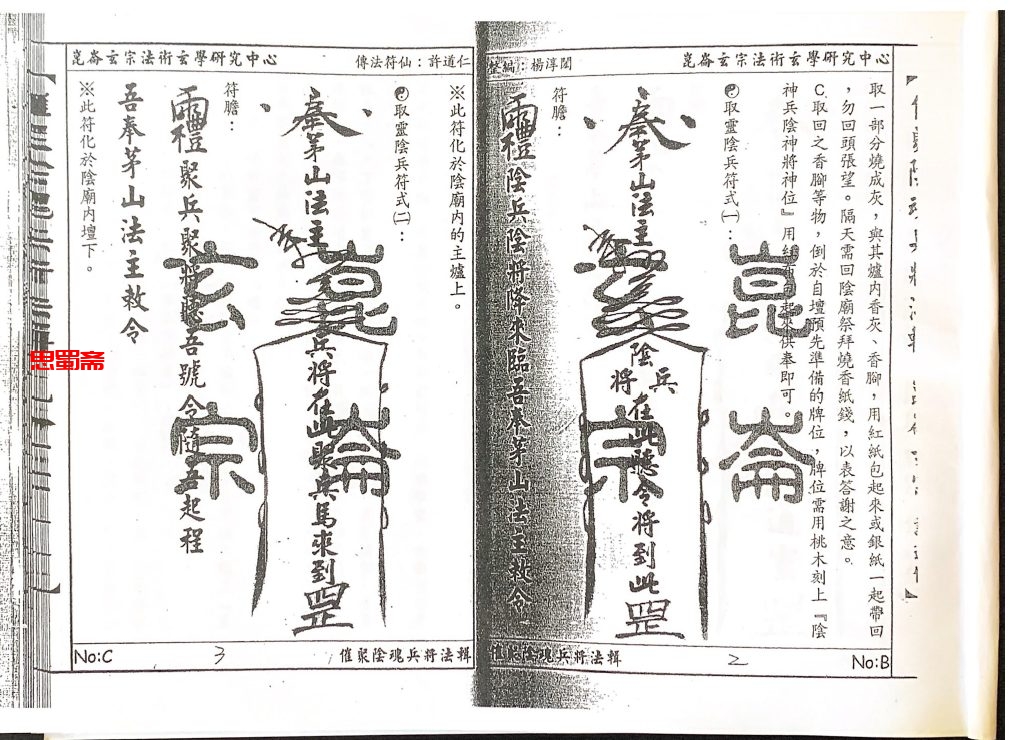 崑崙玄宗法術玄學研究中心
整編：楊淳閎
取一部分燒成灰，與其爐內香灰、香腳，用紅紙包起來或銀紙一起帶回
，勿回頭張望。隔天需回陰廟祭拜燒香紙錢，以表答謝之意。
C.取回之香腳等物，倒於自壇預先準備的牌位，牌位需用桃木刻上『陰
神兵陰神將神位』用紅布包起來供奉即可。
取靈陰兵符式㈠：
奉茅山法主
陰兵將在此聽令將到此罡
符膽：
陰兵陰將降來臨吾奉茅山法主敕令
崑崙玄宗
催聚陰魂兵將法輯
2
No:B
崑崙玄宗法術玄學研究中心
傳法符仙：許道仁
※此符化於陰廟內的主爐上。
取靈陰兵符式㈡：
奉茅山法主
兵將在此聚兵馬來到罡
符膽：
聚兵聚將聽吾號令隨吾起程
吾奉茅山法主敕令
※此符化於陰廟內壇下。
崑崙玄宗
No:C
3
催聚陰魂兵將法輯
忠蜀斋